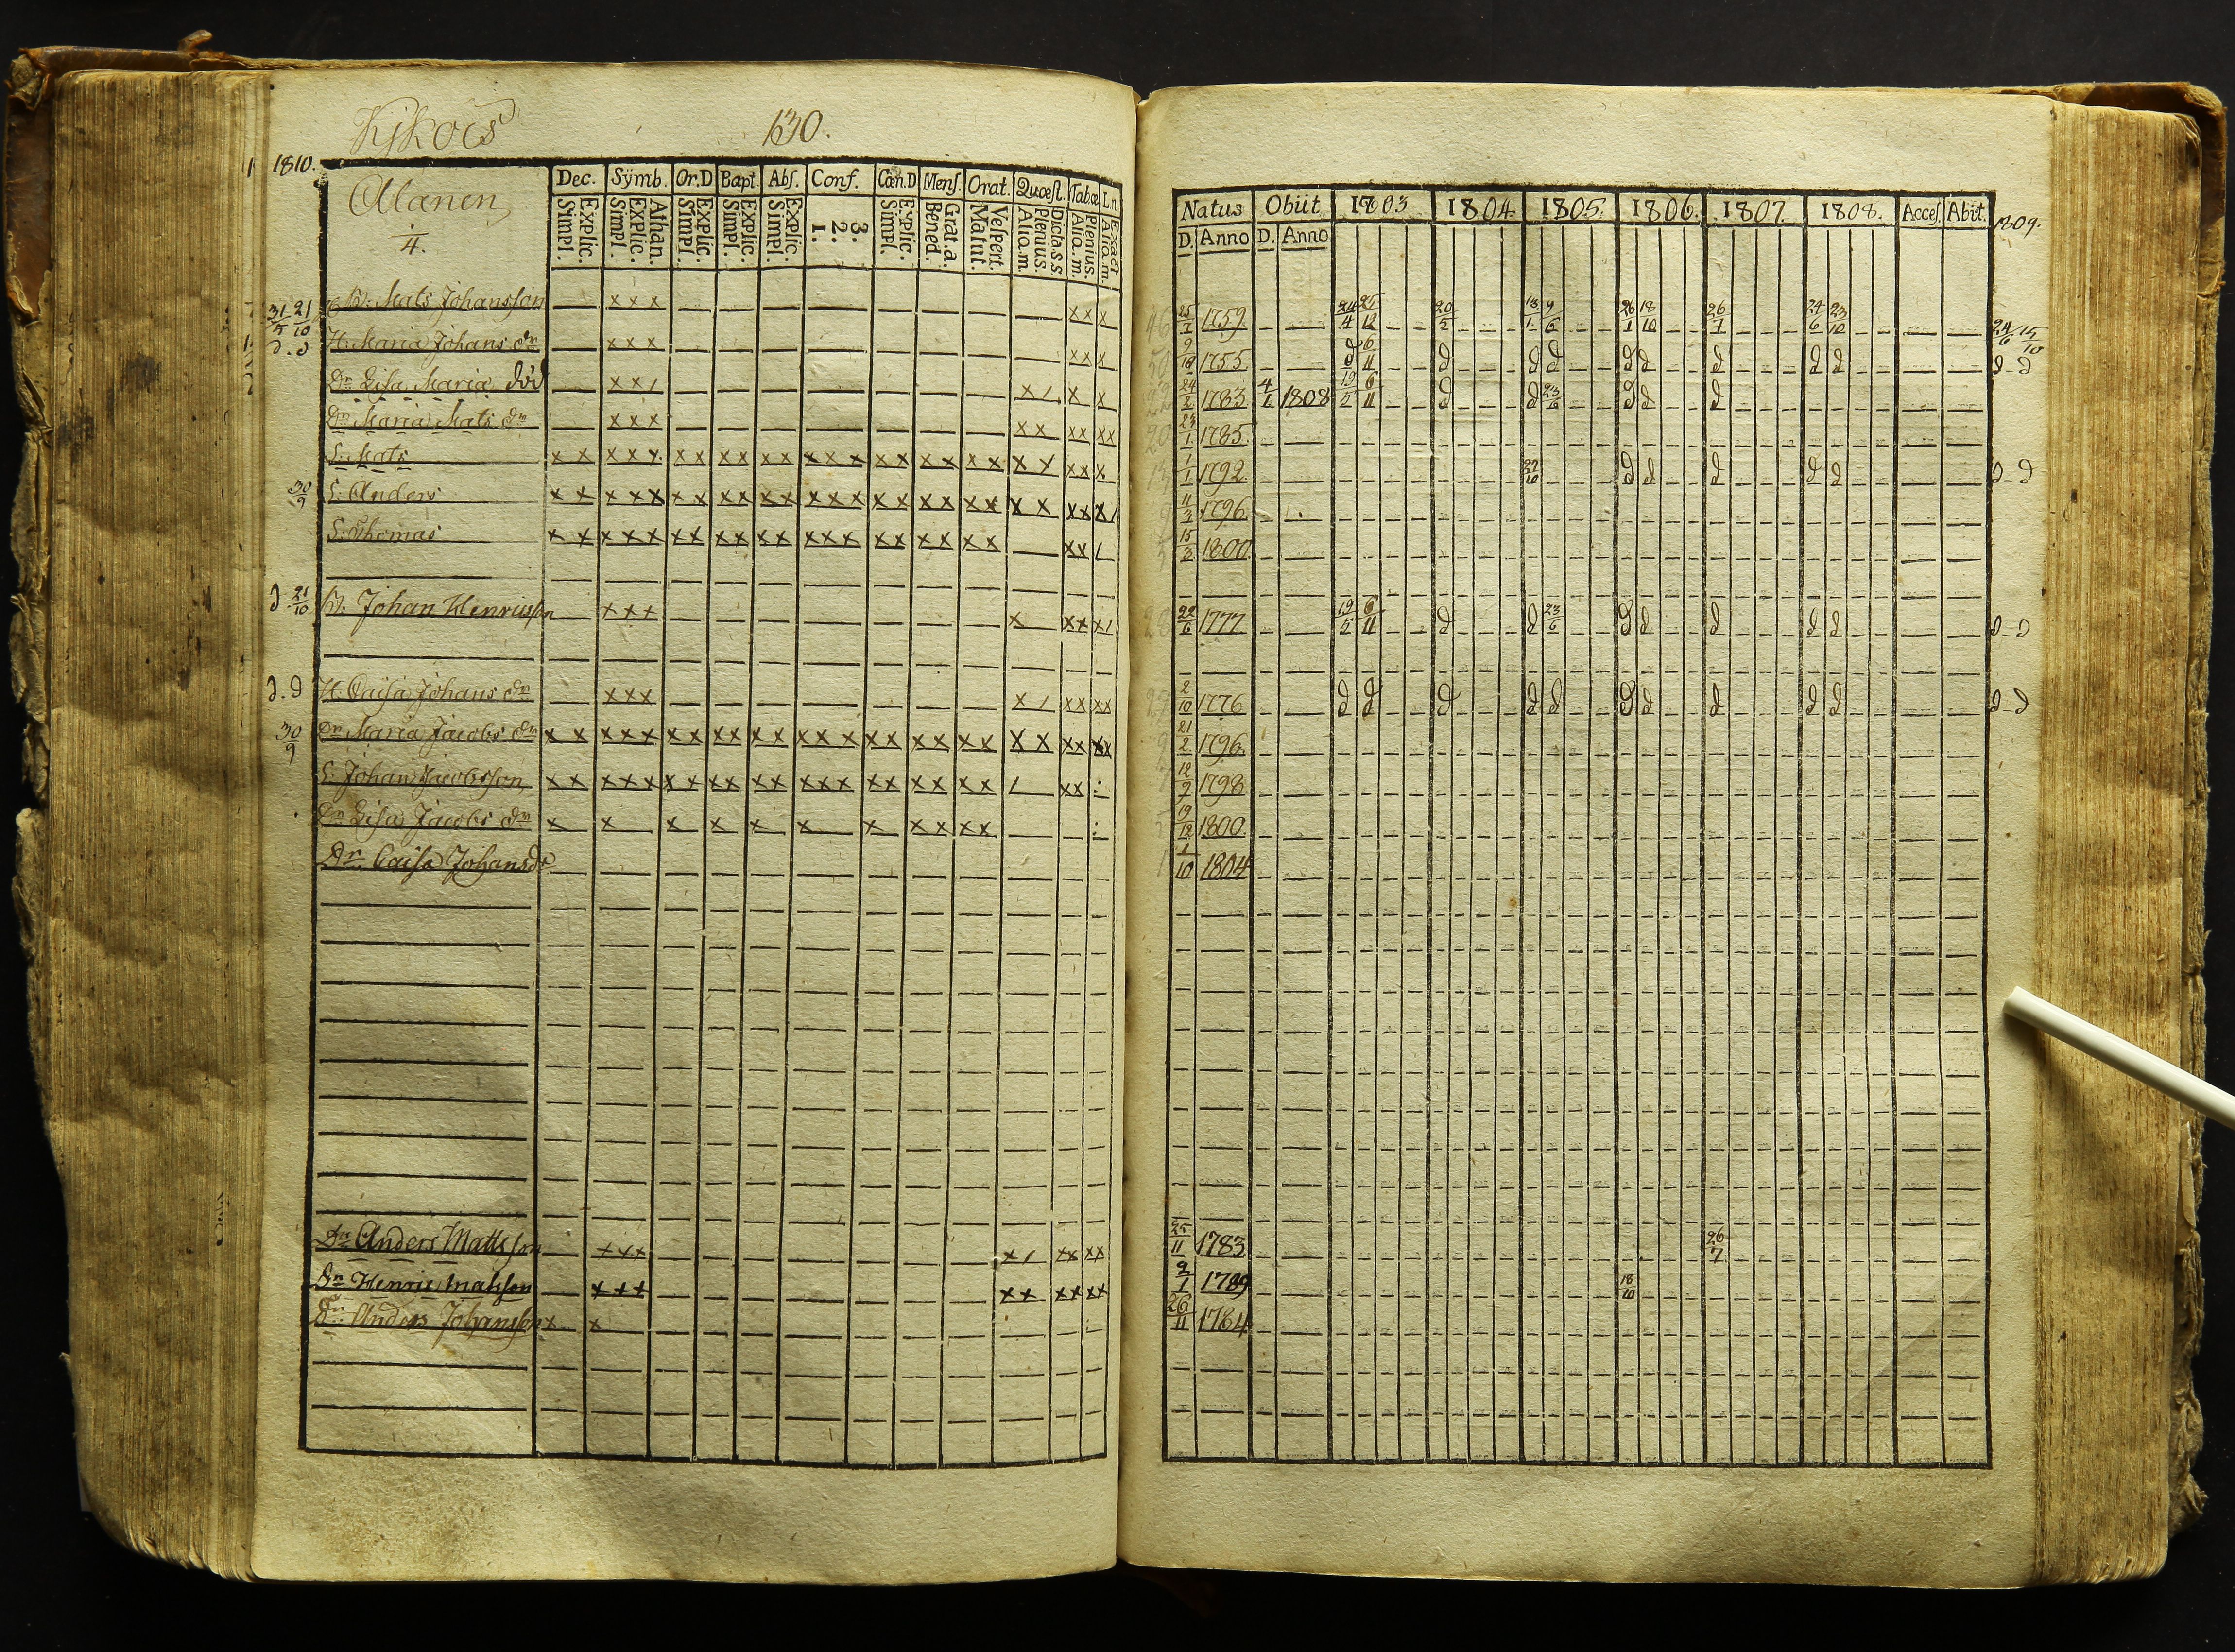 Kjkois 130.
1810.
Alanen
4.
Dec. Sÿmb. Or.D Bapt. Abſ. Conf. Cœn.D Menſ. Orat. Quœſt. Tabœ Ln
Explic. Simpl. Athan. Explic. Simpl. Explic. Simpl. Explic. Simpl. Explic. Simpl. 3. 2. 1. Explic. Simpl. Grat.a. Bened. Veſpert. Matut. Dicta s.s. Plenius. Alia.m. Plenius. Alia.m. Exact Alia.m.
B. Mats Johansson
H. Maria Johans dr
Dr Lisa Maria död
Dr Maria Mats dr
S. Mats
S. Anders
S. Thomas
B. Johan Henricsson
H. Caisa Johans dr
Dr Maria Jacobs dr
S. Johan Jacobsson
Dr Lisa Jacobs dr
Dr Caisa Johansdr
Dn Anders Mattsson
Dn Henric Matsson
Dn Anders Johansson
Natus Obiit 1803 1804 1805. 1806. 1807. 1808. Acceſ. Abit. 1809.
D. Anno D. Anno
25/7 1759 24/4 25/12 20/5 26/1 18/10 26/7 24/6 23/10 24/6 15/10
9/18 1755. d 6/11 d d d d d d d d d - d
24/2 1783 4/1 1808 19/5 6/11 d d 23/6 d d d
23/1 1785.
1/1 1792. 27/10 d d d d d d - d
11/3 1796
15/3 1800.
22/6 1777 19/5 6/11 d d 23/6 d d d d d d - d
2/10 1776 d d d d d d d d d d d - d
21/2 1796.
12/9 1798
19/12 1800
1/10 1804
25/11 1783 26/7
2/1 1789 18/10
26/11 1784